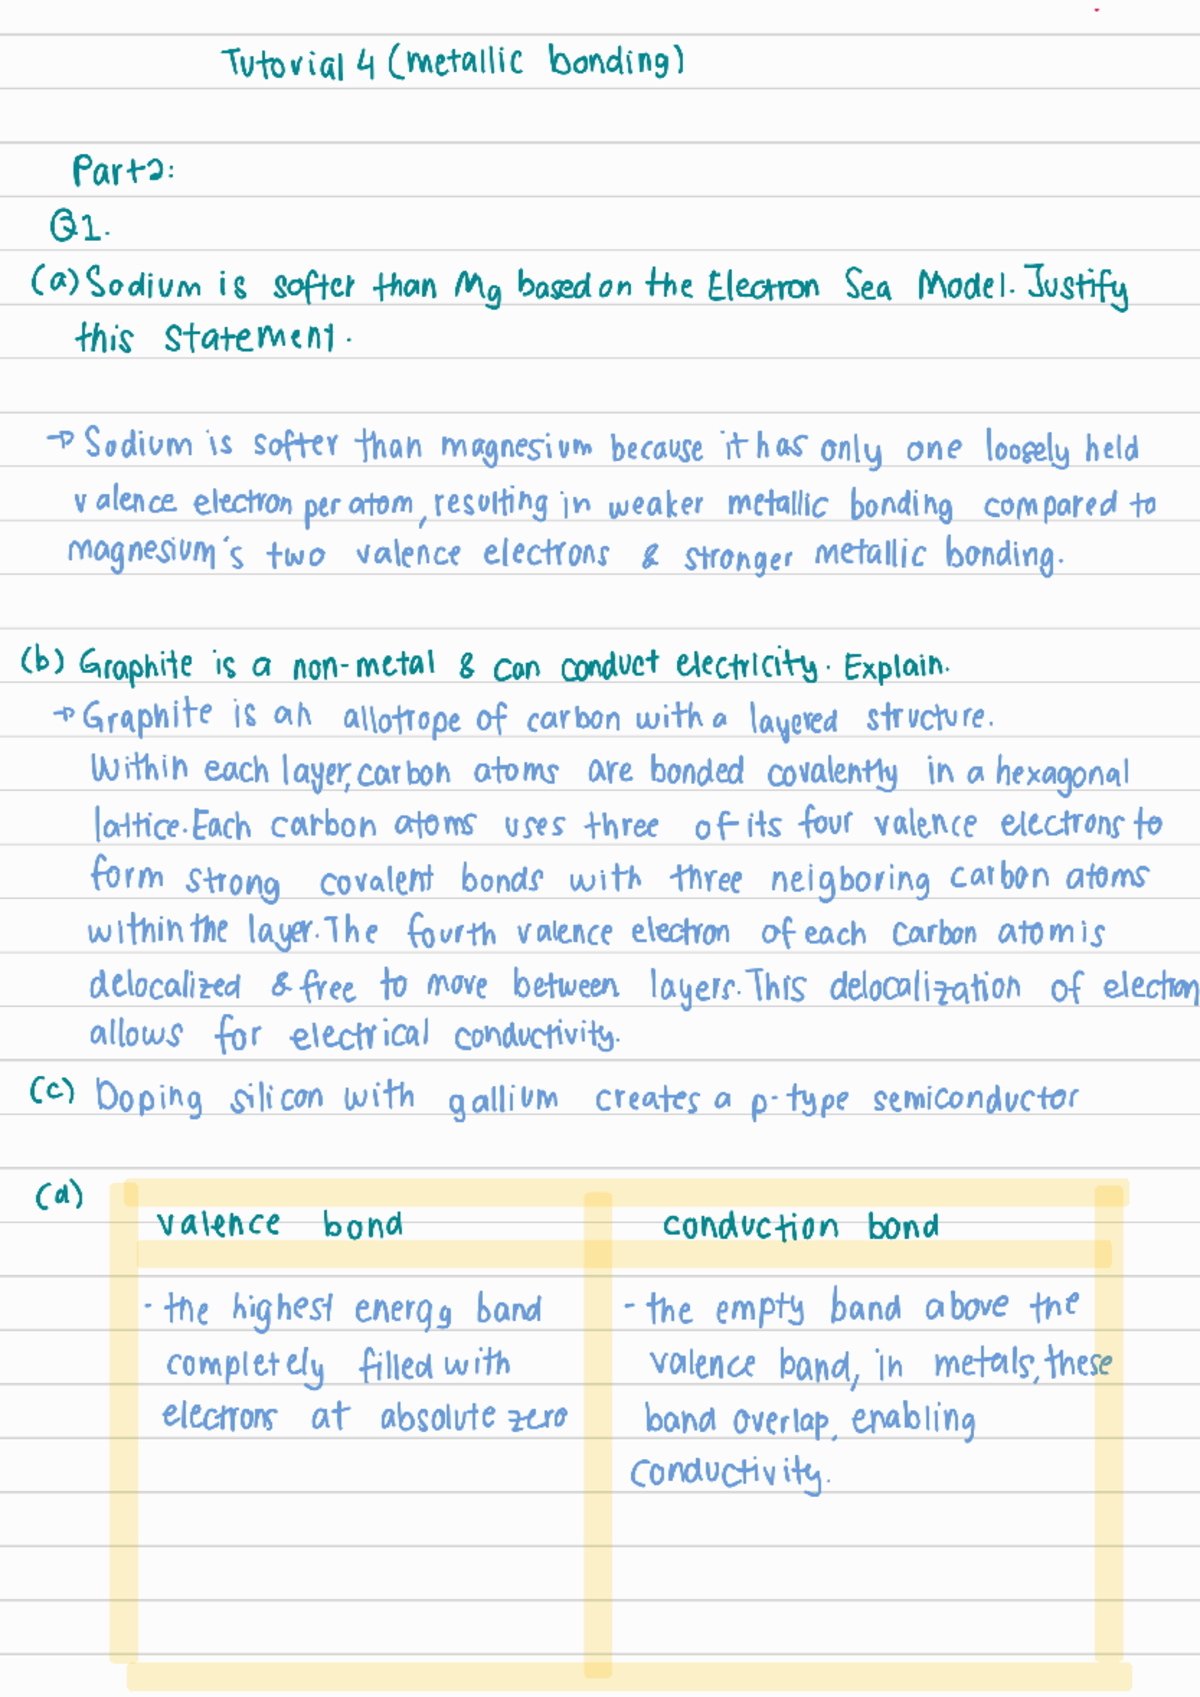 Tutorial 4 (metallic bonding)
Part2:
Q1.
(a) Sodium is softer than Mg based on the Electron Sea Model. Justify
this statement.
→ Sodium is softer than magnesium because it has only one loosely held
valence electron per atom, resulting in weaker metallic bonding compared to
magnesium's two valence electrons & stronger metallic bonding.
(b) Graphite is a non-metal & can conduct electricity. Explain.
→ Graphite is an allotrope of carbon with a layered structure.
Within each layer, carbon atoms are bonded covalently in a hexagonal
lattice. Each carbon atoms uses three of its four valence electrons to
form strong covalent bonds with three neigboring carbon atoms
within the layer. The fourth valence electron of each carbon atom is
delocalized & free to move between layers. This delocalization of electron
allows for electrical conductivity.
(c) Doping silicon with gallium creates a p-type semiconductor
(d)
valence bond
conduction bond
- the highest energy band
completely filled with
electrons at absolute zero
- the empty band above the
valence band, in metals, these
band overlap, enabling
conductivity.